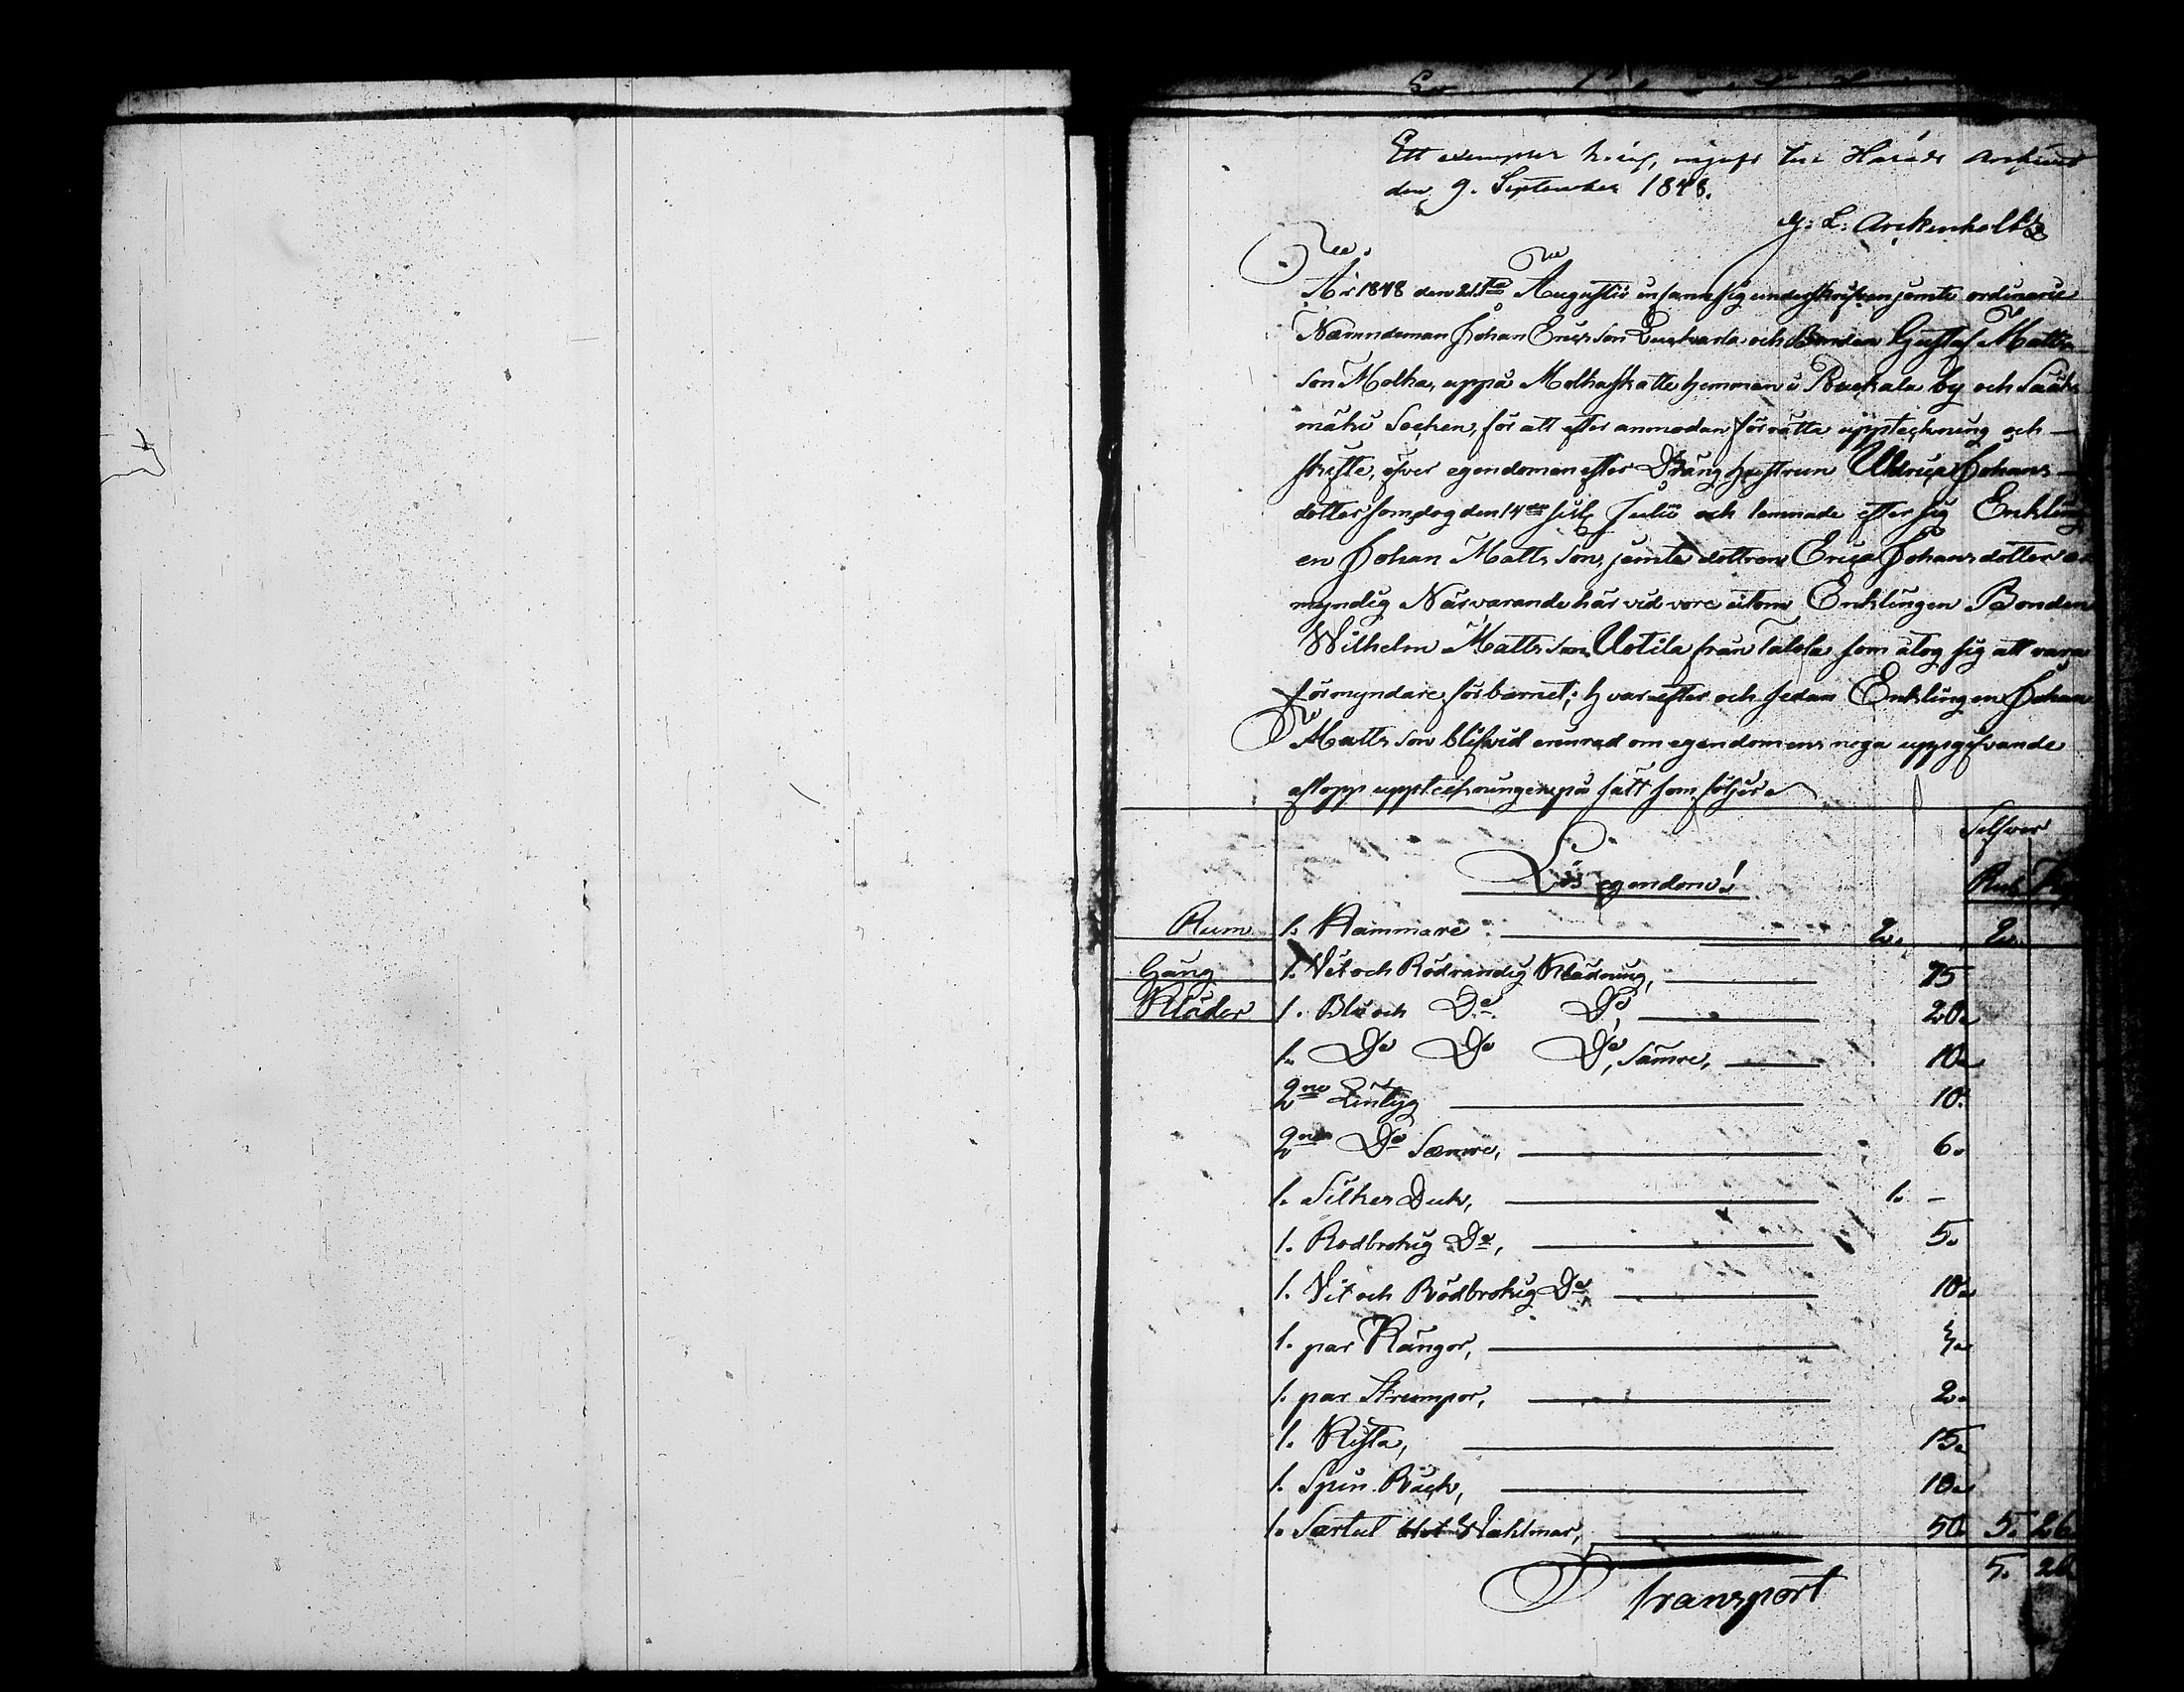 Ett exemplar häraf, ingifvit till Härads Archivet
den 9. September 1848.
L. Arckenholtz
År 1848 den 21sta Augustii infann sig underskrifven jemte ordinarie
Nämndeman Johan Ericsson och Bonden Gustaf Matts
son Molha, uppå Molha skatte hemman i Buckala by och Sääks
mäki Socken, för att efter anmodan förrätta uppteckning och
skifte, öfver egendomen efter Dräng hustrun Uldrica Johans-
dotter som dog den 14de sisl. Julii och lemnade efter sig Enkling
en Johan Matts son, jemte dottren Erica Johansdotter o
myndig Närvarande här vid vore utom Enklingen Bonden
Wilhelm Matts son Uotila från Talola som åtog sig att vara
förmyndare för barnet; hvarefter och sedan Enklingen Johan
Matts son blifvid erinrad om egendomens noga uppgifvande
aflopp uppteckningen på sätt som följer
Silfver
Lös egendom!
Rub. Kop.
Rum 1. Kammare 2. 2.
Gång 1. Vit och Rödrandig Klädning, 75
Kläder 1. Blå och Do Do, 20.
1. Do Do Do, sämre, 10.
2ne Lintyg 10.
2ne Do Sämre, 6.
1. Silkes Duk, 1. -
1. Rödbrokig Do, 5.
1. Vit och Rödbrokig Do 10.
1. par Kängor, 3.
1. par Strumpor, 2.
1. Kista, 15.
1. Spin Råck, 10.
1. Särtut blot Wahlmar, 50. 5. 26.
5. 26
Transport